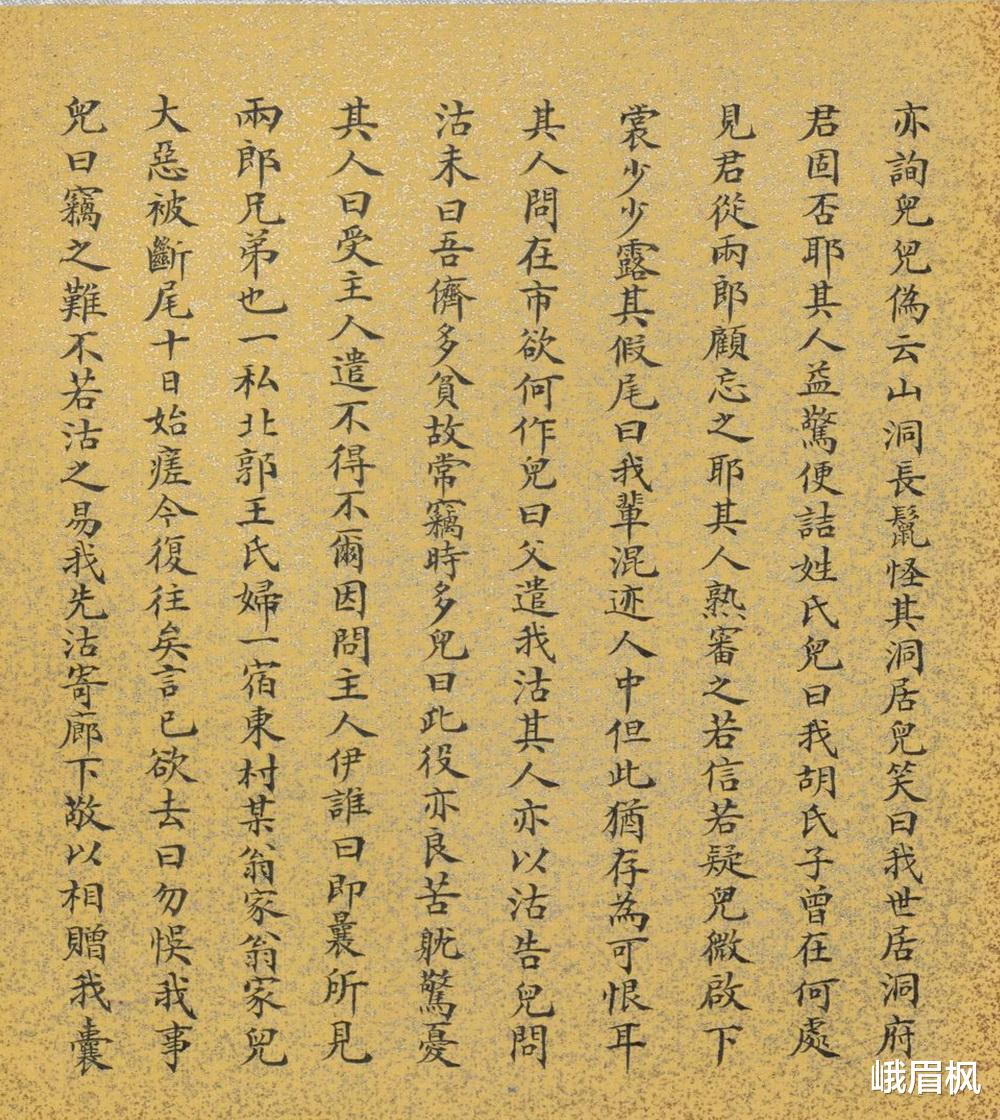 亦詢兒兒偽云山洞長鬣怪其洞居兒笑曰我世居洞府
君固否耶其人益驚便詰姓氏兒曰我胡氏子曾在何處
見君從兩郎顧忘之耶其人熟審之若信若疑兒微啟下
裳少少露其假尾曰我輩混迹人中但此猶存為可恨耳
其人問在市欲何作兒曰父遣我沽其人亦以沽告兒問
沽未曰吾儕多貧故常竊時多兒曰此役亦良苦躭驚憂
其人曰受主人遣不得不爾因問主人伊誰曰即曩所見
兩郎兄弟也一私北郭王氏婦一宿東村某翁家翁家兒
大惡被斷尾十日始瘥今復往矣言已欲去曰勿悞我事
兒曰竊之難不若沽之易我先沽寄廊下敬以相贈我囊
峨眉枫